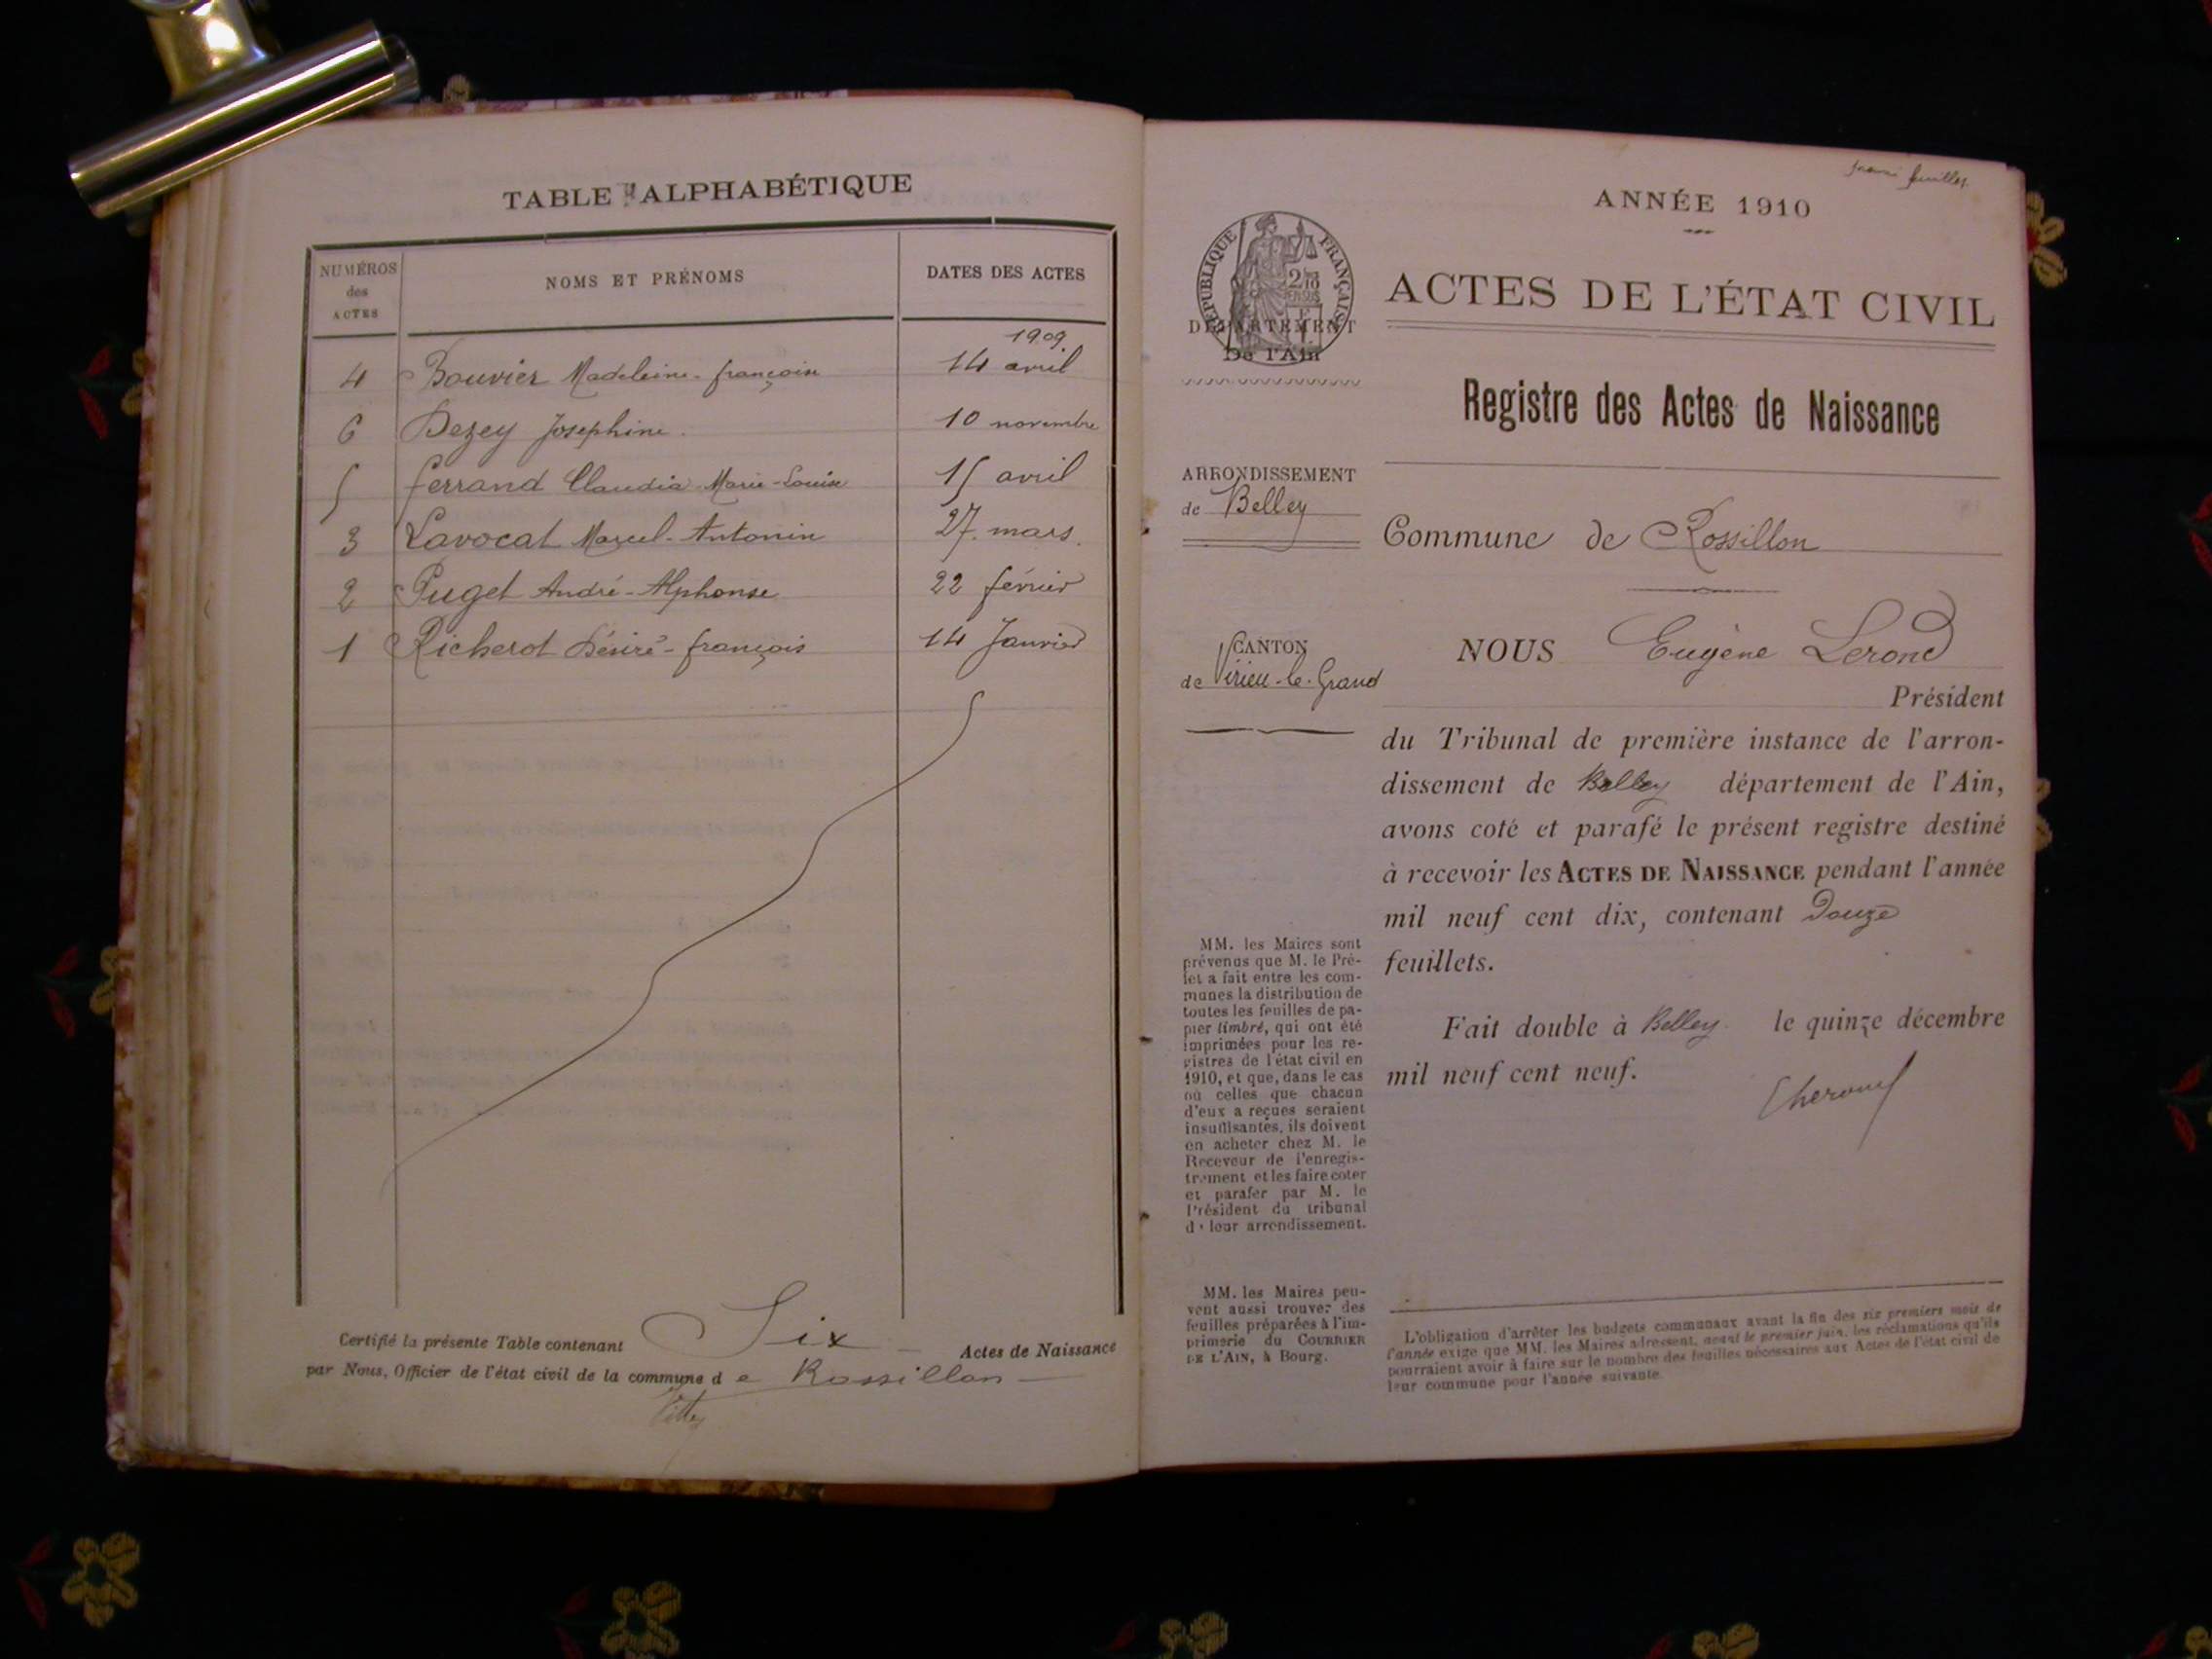 TABLE ALPHABÉTIQUE
NUMÉROS des ACTES
NOMS ET PRÉNOMS
DATES DES ACTES
1909
4 Bouvier Madeleine-françoise 14 avril
6 Dezey Josephine. 10 novembre
5 ferrand Claudia Marie-Louise 15 avril
3 Lavocat Marcel-Antonin 27 mars.
2 Puget André-Alphonse 22 février
1 Richerot Désiré-françois 14 Janvier
Certifié la présente Table contenant Six Actes de Naissance
par Nous, Officier de l'état civil de la commune de Rossillon
feuillet
ANNÉE 1910
RÉPUBLIQUE FRANÇAISE
2/10 EN SUS
DÉPARTEMENT
De l'Ain
ACTES DE L'ÉTAT CIVIL
Registre des Actes de Naissance
ARRONDISSEMENT
de Belley
Commune de Rossillon
CANTON
de Virieu-le-Grand
NOUS Eugène Lerond
Président
du Tribunal de première instance de l'arron-
dissement de Belley département de l'Ain,
avons coté et parafé le présent registre destiné
à recevoir les ACTES DE NAISSANCE pendant l'année
mil neuf cent dix, contenant Douze
feuillets.
Fait double à Belley. le quinze décembre
mil neuf cent neuf.
MM. les Maires sont
prévenus que M. le Pré-
fet a fait entre les com-
munes la distribution de
toutes les feuilles de pa-
pier timbré, qui ont été
imprimées pour les re-
gistres de l'état civil en
1910, et que, dans le cas
où celles que chacun
d'eux a reçues seraient
insuffisantes, ils doivent
en acheter chez M. le
Receveur de l'enregis-
trement et les faire coter
et parafer par M. le
Président du tribunal
de leur arrondissement.
MM. les Maires peu-
vent aussi trouver des
feuilles préparées à l'im-
primerie du COURRIER
DE L'AIN, à Bourg.
L'obligation d'arrêter les budgets communaux avant la fin des six premiers mois de
l'année exige que MM. les Maires adressent, avant le premier juin, les réclamations qu'ils
pourraient avoir à faire sur le nombre des feuilles nécessaires aux Actes de l'état civil de
leur commune pour l'année suivante.